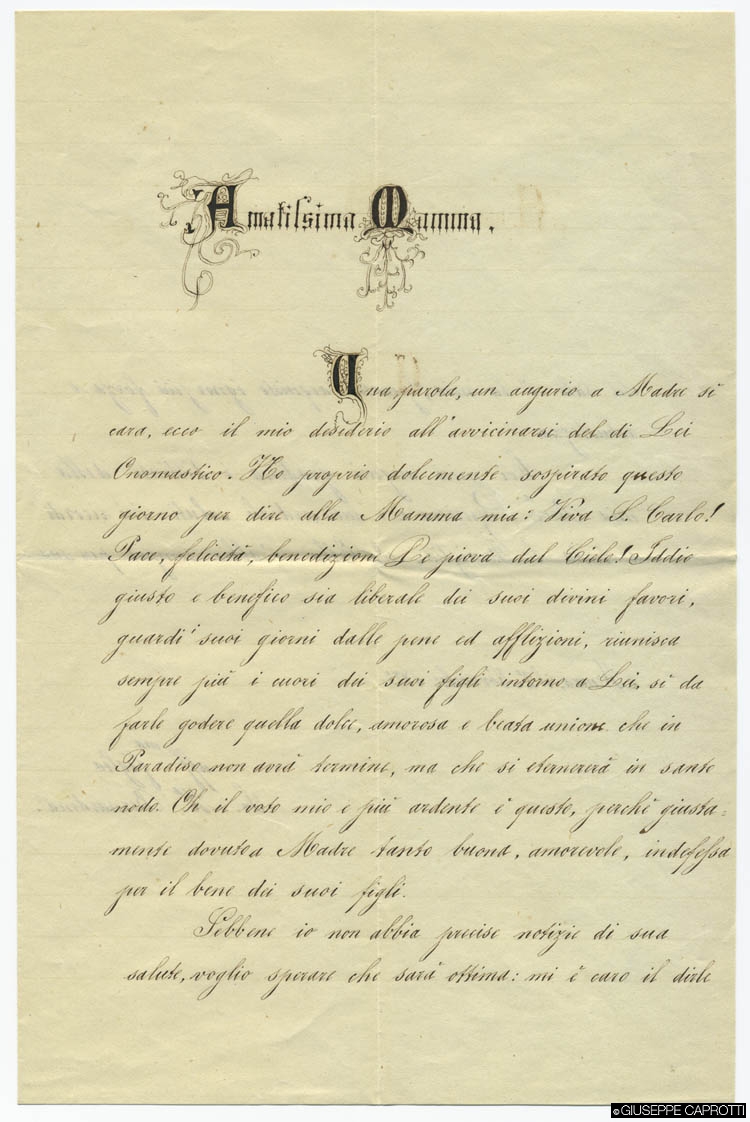 Amatissima Mamma.
Una parola, un augurio a Madre sì
cara, ecco il mio desiderio all'avvicinarsi del di Lei
Onomastico. Ho proprio dolcemente sospirato questo
giorno per dire alla Mamma mia: Viva S. Carlo!
Pace, felicità, benedizione Le piova dal Cielo! Iddio
giusto e benefico sia liberale dei suoi divini favori,
guardi i suoi giorni dalle pene ed afflizioni, riunisca
sempre più i cuori dei suoi figli intorno a Lei, sì da
farle godere quella dolce, amorosa e beata unione che in
Paradiso non avrà termine, ma che si eternererà in sante
nodo. Oh il voto mio e più ardente è questo, perchè giusta=
mente dovuto a Madre tanto buona, amorevole, indefessa
per il bene dei suoi figli.
Sebbene io non abbia precise notizie di sua
salute, voglio sperare che sarà ottima: mi è caro il dirle
©GIUSEPPE CAPROTTI